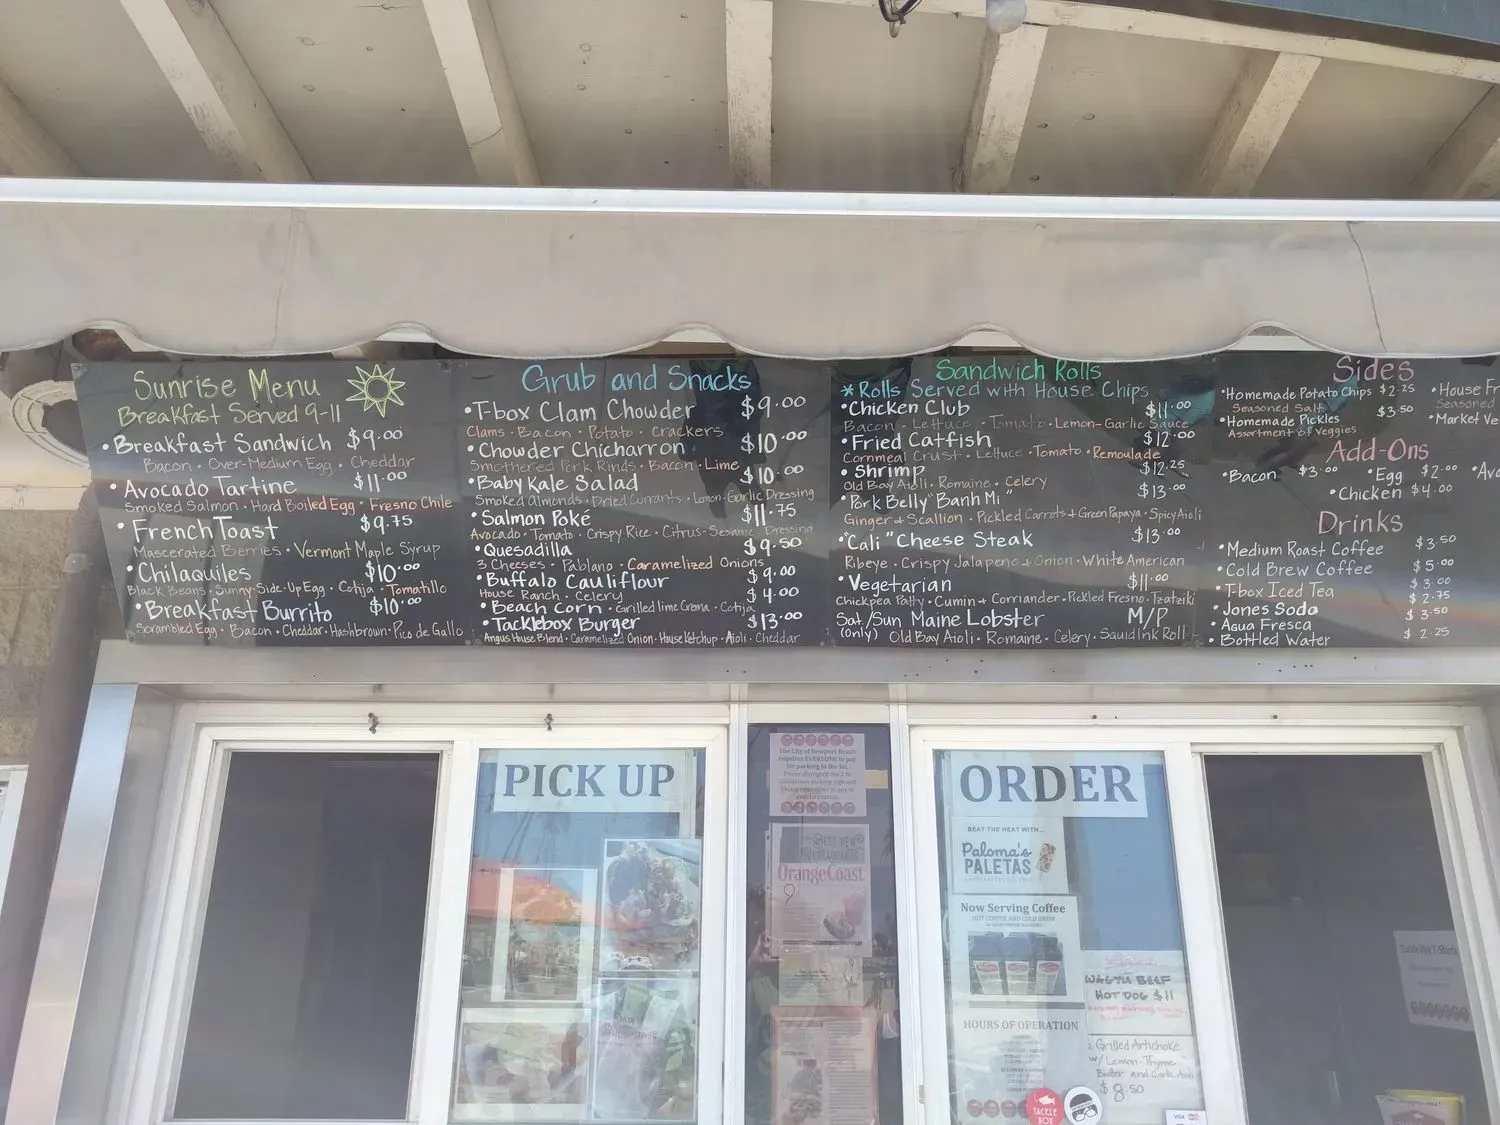 Sunrise Menu
Breakfast Served 9-11
•Breakfast Sandwich $9.00
Bacon • Over-Medium Egg • Cheddar
•Avocado Tartine $11.00
Smoked Salmon • Hard Boiled Egg • Fresno Chile
•French Toast $9.75
Mascerated Berries • Vermont Maple Syrup
•Chilaquiles $10.00
Black Beans • Sunny-Side-Up Egg • Cotija • Tomatillo
•Breakfast Burrito $10.00
Scrambled Egg • Bacon • Cheddar • Hashbrown • Pico de Gallo
Grub and Snacks
•T-box Clam Chowder $9.00
Clams • Bacon • Potato • Crackers
•Chowder Chicharron $10.00
Smothered Pork Rinds • Bacon • Lime
•Baby Kale Salad $10.00
Smoked Almonds • Dried Currants • Lemon-Garlic Dressing
•Salmon Poké $11.75
Avocado • Tomato • Crispy Rice • Citrus-Sesame Dressing
•Quesadilla $9.50
3 Cheeses • Pablano • Caramelized Onions
•Buffalo Cauliflour $9.00
House Ranch • Celery
•Beach Corn • Grilled lime Crema • Cotija $4.00
•Tacklebox Burger $13.00
Angus House Blend • Caramelized Onion • House Ketchup • Aioli • Cheddar
Sandwich Rolls
*Rolls Served with House Chips
•Chicken Club $11.00
Bacon • Lettuce • Tomato • Lemon-Garlic Sauce
•Fried Catfish $12.00
Cornmeal Crust • Lettuce • Tomato • Remoulade
•Shrimp $12.25
Old Bay Aioli • Romaine • Celery
•Pork Belly "Banh Mi" $13.00
Ginger + Scallion • Pickled Carrots + Green Papaya • Spicy Aioli
•"Cali" Cheese Steak $13.00
Ribeye • Crispy Jalapeno + Onion • White American
•Vegetarian $11.00
Chickpea Patty • Cumin + Corriander • Pickled Fresno • Tzatziki
Sat/Sun Maine Lobster M/P
(only) Old Bay Aioli • Romaine • Celery • Squid Ink Roll
Sides
•Homemade Potato Chips $2.25
Seasoned Salt
•Homemade Pickles $3.50
Assortment of Veggies
•House Fr
Seasoned
•Market Ve
Add-Ons
•Bacon $3.00 •Egg $2.00 •Avo
•Chicken $4.00
Drinks
•Medium Roast Coffee $3.50
•Cold Brew Coffee $5.00
•T-box Iced Tea $3.00
•Jones Soda $2.75
•Agua Fresca $3.50
•Bottled Water $2.25
PICK UP
The City of Newport Beach
requires EVERYONE to pay
for parking in the lot.
BEST NEW
RESTAURANTS
OrangeCoast
ORDER
BEAT THE HEAT WITH...
Paloma's
PALETAS
Now Serving Coffee
HOT COFFEE AND COLD BREW
HOURS OF OPERATION
WAGYU BEEF
HOT DOG $11
Grilled Artichoke
w/ Lemon-Thyme
Butter and Garlic Aioli
$8.50
TACKLE
BOX
VISA